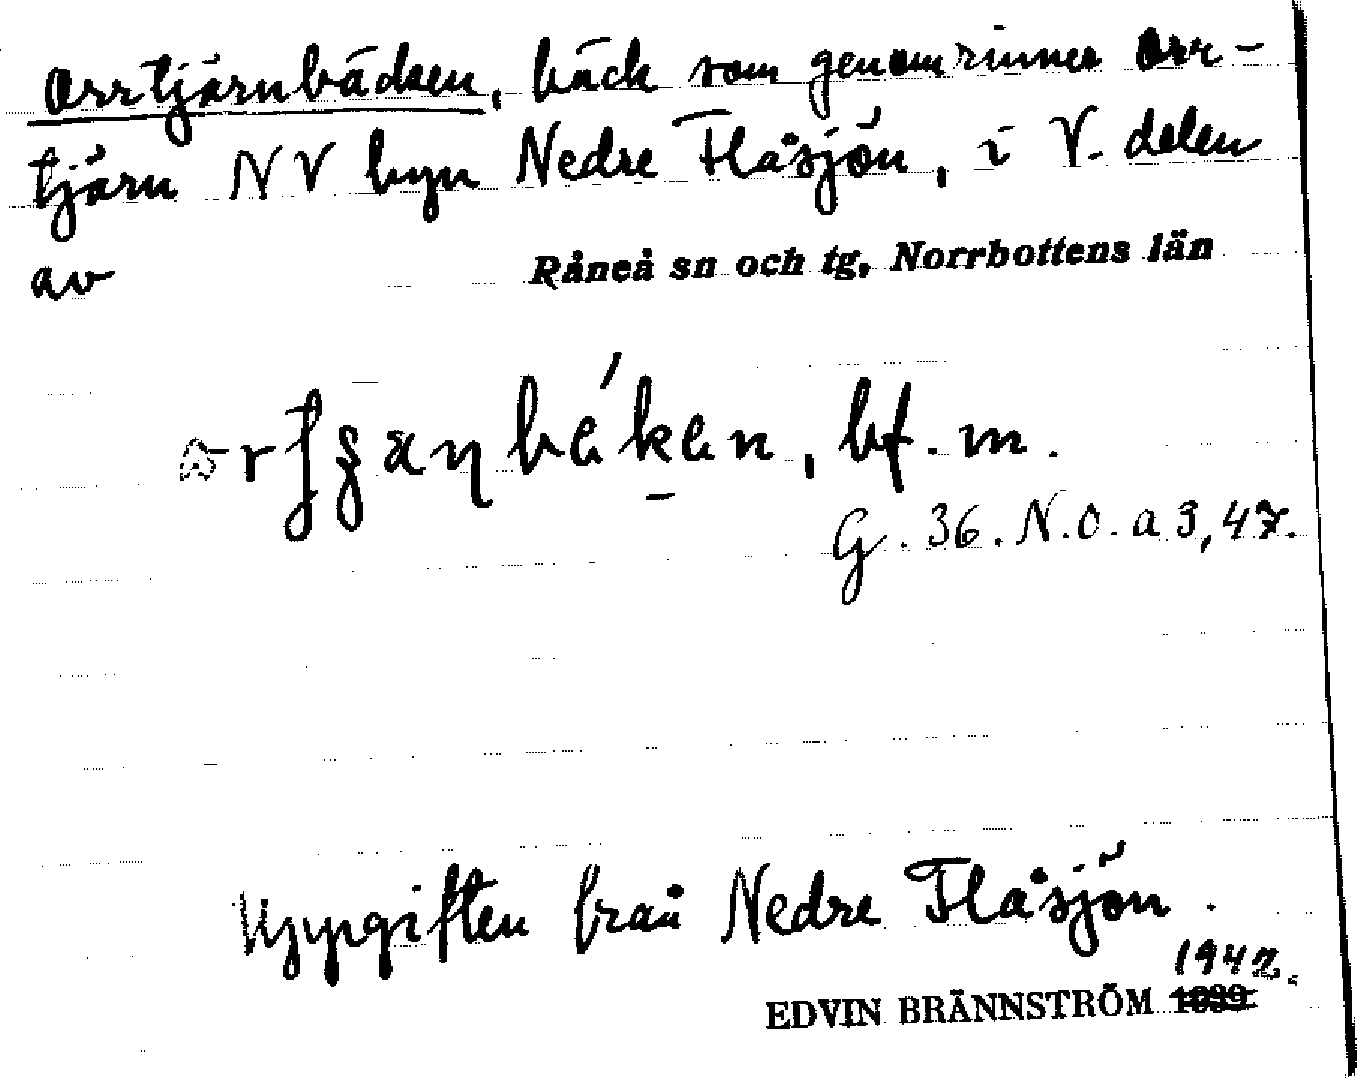 Orrtjärnbäcken, bäck som genomrinner Orr-
tjärn NV byn Nedre Flåsjön, i V. delen
av Råneå sn och tg, Norrbottens län
bf. m.
G. 36. N.O. a 3, 47.
Uppgiften från Nedre Flåsjön.
1942.
EDVIN BRÄNNSTRÖM 1939